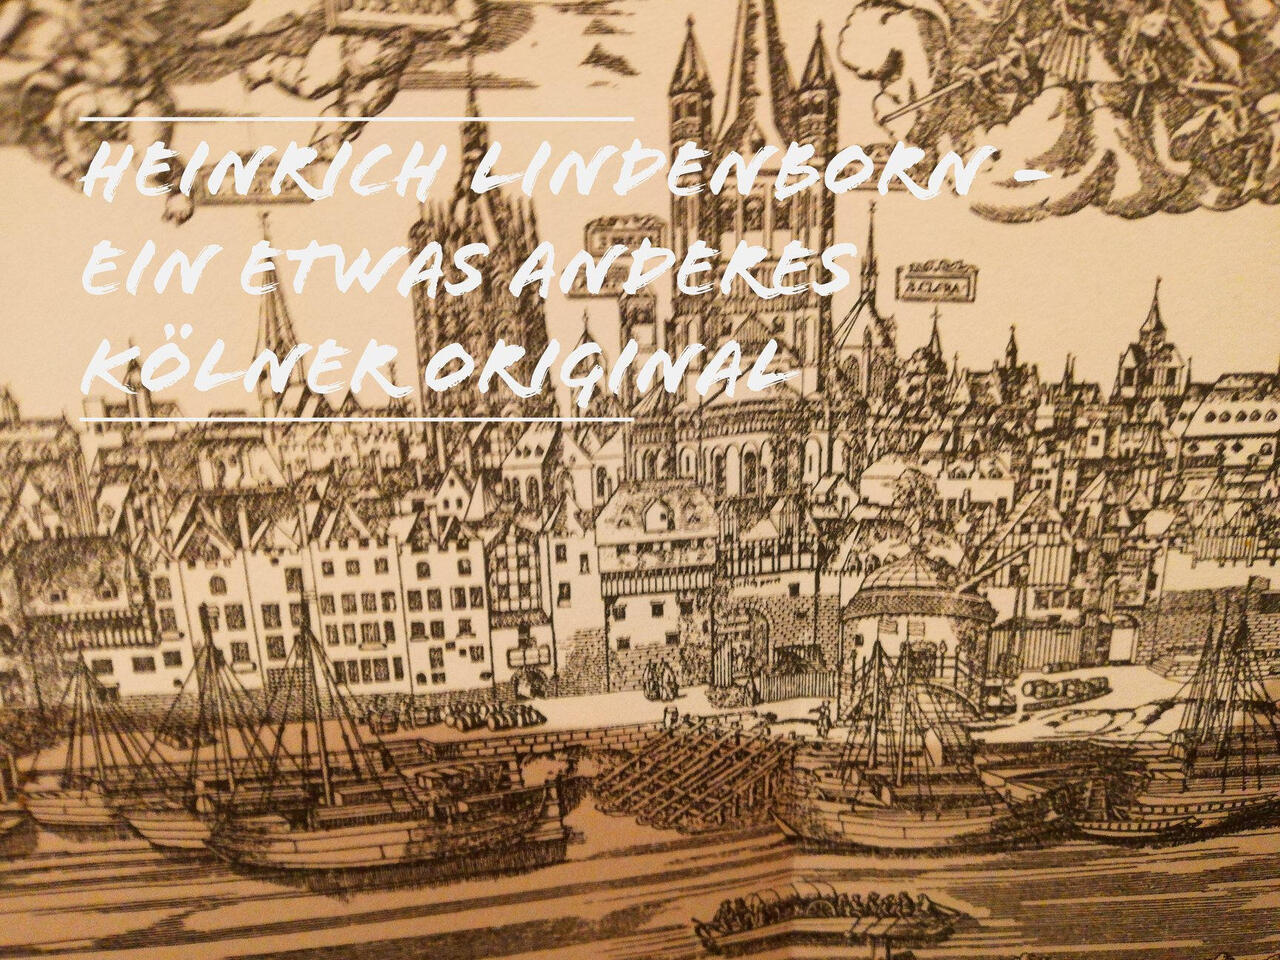 HEINRICH LINDENBORN -
EIN ETWAS ANDERES
KÖLNER ORIGINAL
S. CLARA